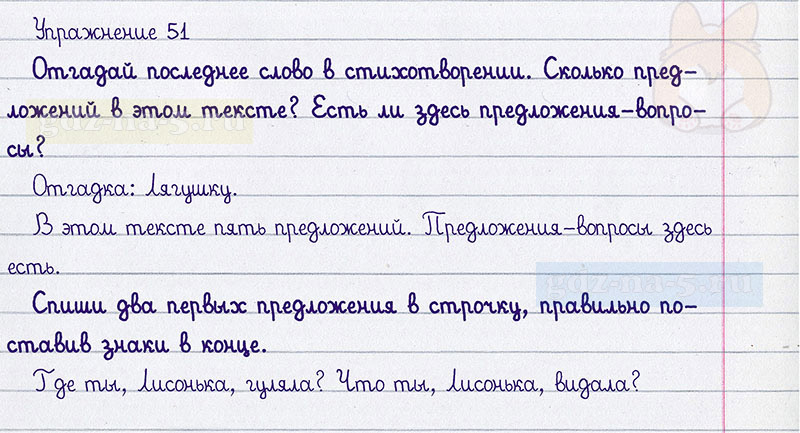 Упражнение 51
Отгадай последнее слово в стихотворении. Сколько пред-
ложений в этом тексте? Есть ли здесь предложения-вопро-
сы?
Отгадка: Лягушку.
В этом тексте пять предложений. Предложения-вопросы здесь
есть.
Спиши два первых предложения в строчку, правильно по-
ставив знаки в конце.
Где ты, Лисонька, гуляла? Что ты, Лисонька, видала?
gdz-na-5.ru
gdz-na-5.ru